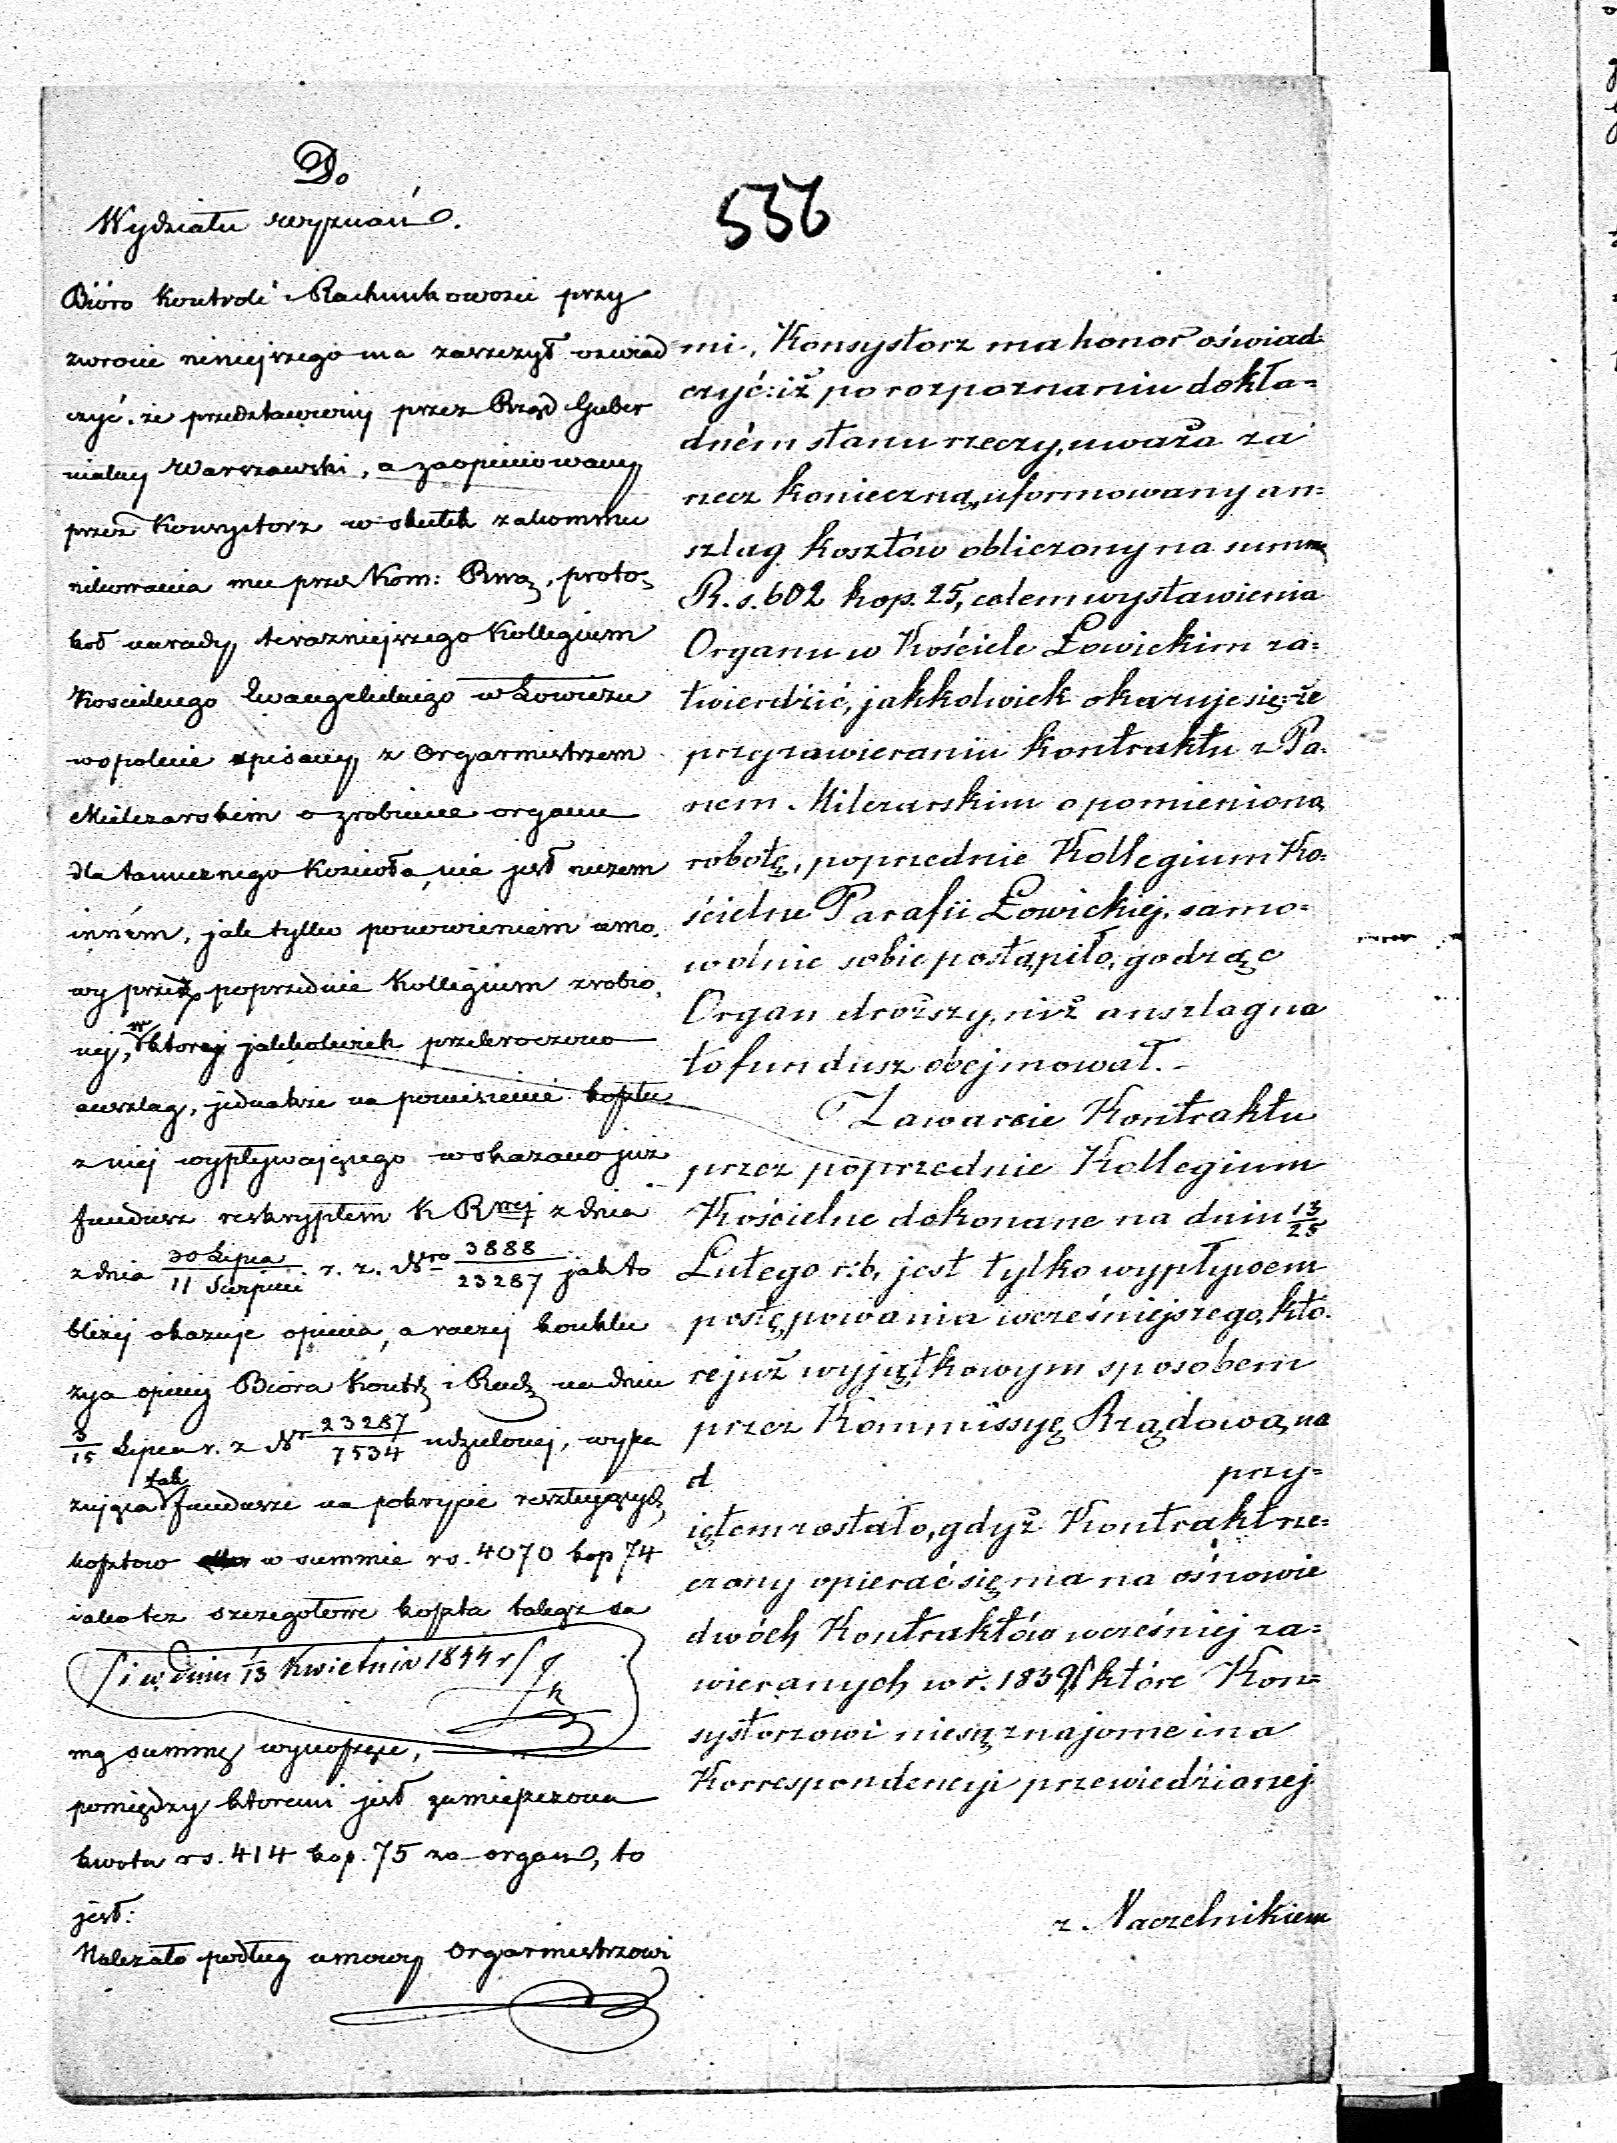 556
Do
Wydziału wyznań.
Bióro Kontroli i Rachunkowości przy
zwrocie niniejszego ma zaszczyt oświad
czyć, że przedstawiony przez Rząd Guber
nialny Warszawski, a zaopiniowany
przez Konsystorz w skutek zakommu
nikowania mu przez Kom: Rzą, proto=
koł narady terazniejszego Kollegium
Koscielnego Ewangelickiego w Łowiczu
wspolnie spisany z Organmistrzem
Mielczarskim o zrobienie organu
dla tamecznego Kościoła, nie jest niczem
inném, jak tylko ponowieniem umo,
wy przez poprzednie Kollegium zrobio,
nej, w ktorej jakkolwiek przekroczono
anszlag, jednakze na poniesienie kosztu
z niej wypływającego wskazano już
fundusz reskryptem K Rząej z dnia
z dnia 30 Lipca / 11 Sierpnia r. z. Nro 3888 / 23287 jak to
bliżej okazuje opinia, a raczej konklu
zya opinij Bióra Kontr i Rach na dniu
3/15 Lipca r. z Nr 23287 / 7534 udzielonej, wyka
zująca tak fundusze na pokrycie resztujących
kosztow w summie rs. 4070 kop 74
iako tez szczegołowe koszta takąż sa
i w dniu 1/13 Kwietnia 1844 r
mą summę wynoszące,
pomiędzy ktoremi jest zamieszczona
kwota rs. 414 kop. 75 za organ, to
jest:
Należało podług umowy Organmistrzowi
mi, Konsystorz ma honor oświad=
czyć: iż po rozpoznaniu dokła=
dném stanu rzeczy, uważa za
rzecz konieczną, uformowany an=
szlag kosztów obliczony na summę
R. s. 602 kop. 25, celem wystawienia
Organu w Kościele Łowickim za=
twierdzić, jakkolwiek okazuje się: że
przy zawieraniu kontraktu z Pa=
nem Milczarskim o pomienioną
robotę, poprzednie Kollegium Ko=
ścielne Parafii Łowickiej, samo=
wolnie sobie postąpiło, godząc
Organ droższy, niż anszlag na
to fundusz obejmował. -
Zawarcie Kontraktu
przez poprzednie Kollegium
Kościelne dokonane na dniu 13/25
Lutego r. b. jest tylko wypływem
postępowania wcześniejszego, któ=
re już wyjątkowym sposobem
przez Kommissyę Rządową na
d przy=
jętem zostało, gdyż Kontrakt rze=
czony opierać się ma na osnowie
dwóch Kontraktów wcześniej za=
wieranych w r. 1839 które Kon=
systorzowi nie są znajome i na
Korrespondencyi przewiedzianej
z Naczelnikiem